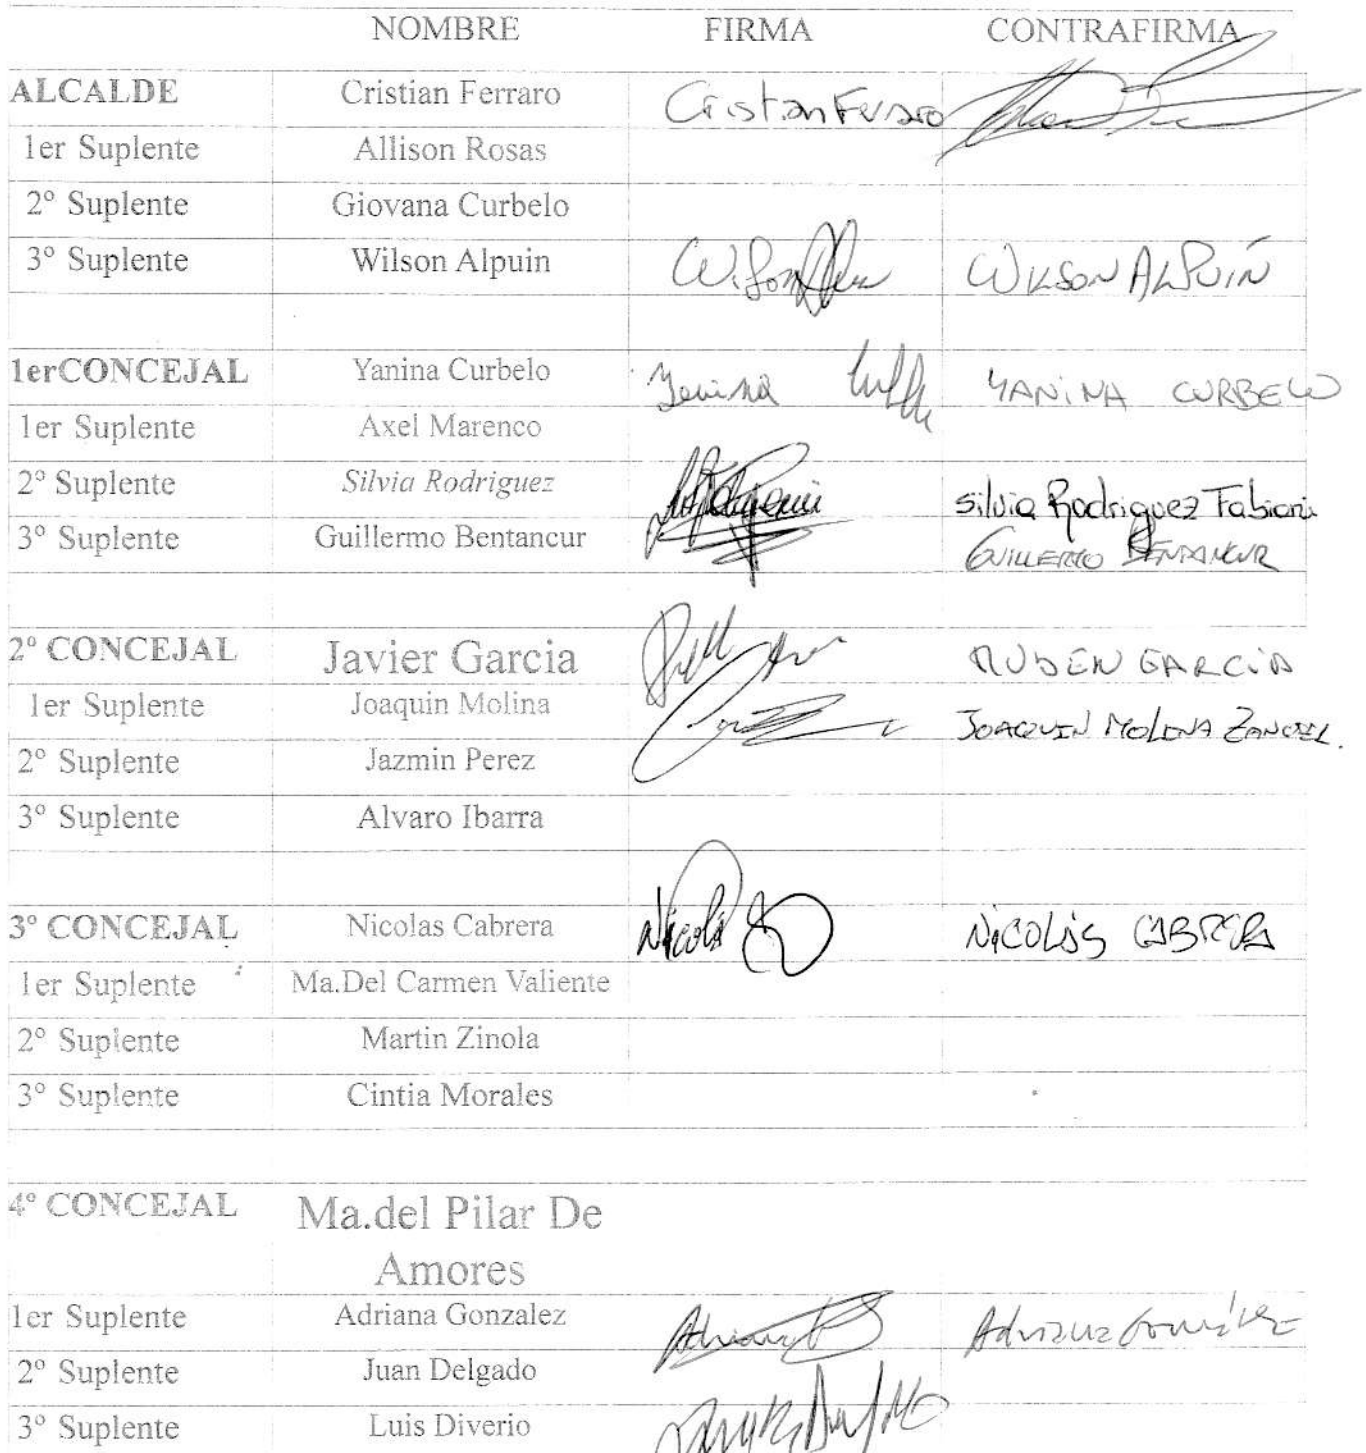 NOMBRE FIRMA CONTRAFIRMA
ALCALDE Cristian Ferraro Cristian Ferraro
1er Suplente Allison Rosas
2° Suplente Giovana Curbelo
3° Suplente Wilson Alpuin Wilson WILSON ALPUÍN
1erCONCEJAL Yanina Curbelo Yanina YANINA CURBELO
1er Suplente Axel Marenco
2° Suplente Silvia Rodriguez Silvia Rodriguez Fabiani
3° Suplente Guillermo Bentancur GUILLERMO BENTANCUR
2° CONCEJAL Javier Garcia RUBEN GARCIA
1er Suplente Joaquin Molina JOAQUIN MOLINA
2° Suplente Jazmin Perez
3° Suplente Alvaro Ibarra
3° CONCEJAL Nicolas Cabrera Nicolás NICOLÁS CABRERA
1er Suplente Ma.Del Carmen Valiente
2° Suplente Martin Zinola
3° Suplente Cintia Morales
4° CONCEJAL Ma.del Pilar De
Amores
1er Suplente Adriana Gonzalez Adriana Adriana González
2° Suplente Juan Delgado
3° Suplente Luis Diverio